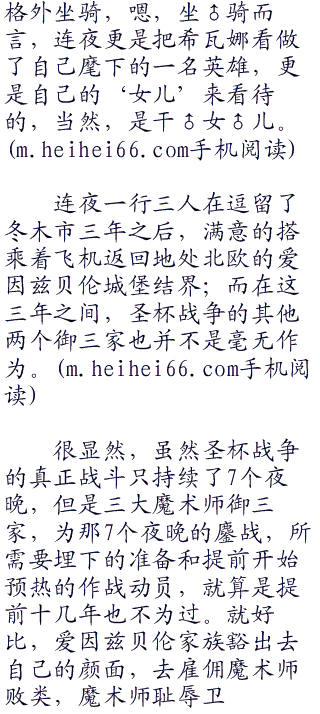 格外坐骑，嗯，坐♂骑而
言，连夜更是把希瓦娜看做
了自己麾下的一名英雄，更
是自己的‘女儿’来看待
的，当然，是干♂女♂儿。
(m.heihei66.com手机阅读)
连夜一行三人在逗留了
冬木市三年之后，满意的搭
乘着飞机返回地处北欧的爱
因兹贝伦城堡结界；而在这
三年之间，圣杯战争的其他
两个御三家也并不是毫无作
为。(m.heihei66.com手机阅
读)
很显然，虽然圣杯战争
的真正战斗只持续了7个夜
晚，但是三大魔术师御三
家，为那7个夜晚的鏖战，所
需要埋下的准备和提前开始
预热的作战动员，就算是提
前十几年也不为过。就好
比，爱因兹贝伦家族豁出去
自己的颜面，去雇佣魔术师
败类，魔术师耻辱卫